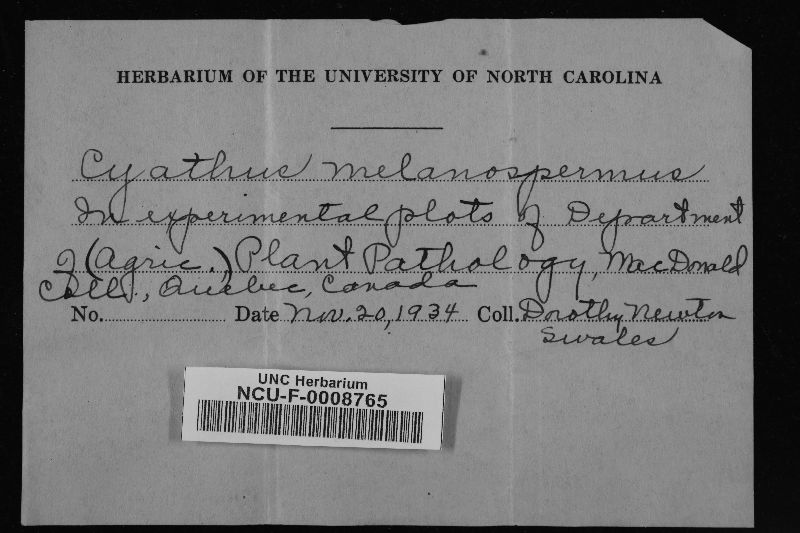 HERBARIUM OF THE UNIVERSITY OF NORTH CAROLINA
Cyathus melanospermus
In experimental plots of Department
of (Agric.) Plant Pathology, MacDonald
Coll., Quebec, Canada
No. Date Nov. 20, 1934 Coll. Dorothy Newton
Swales
UNC Herbarium
NCU-F-0008765